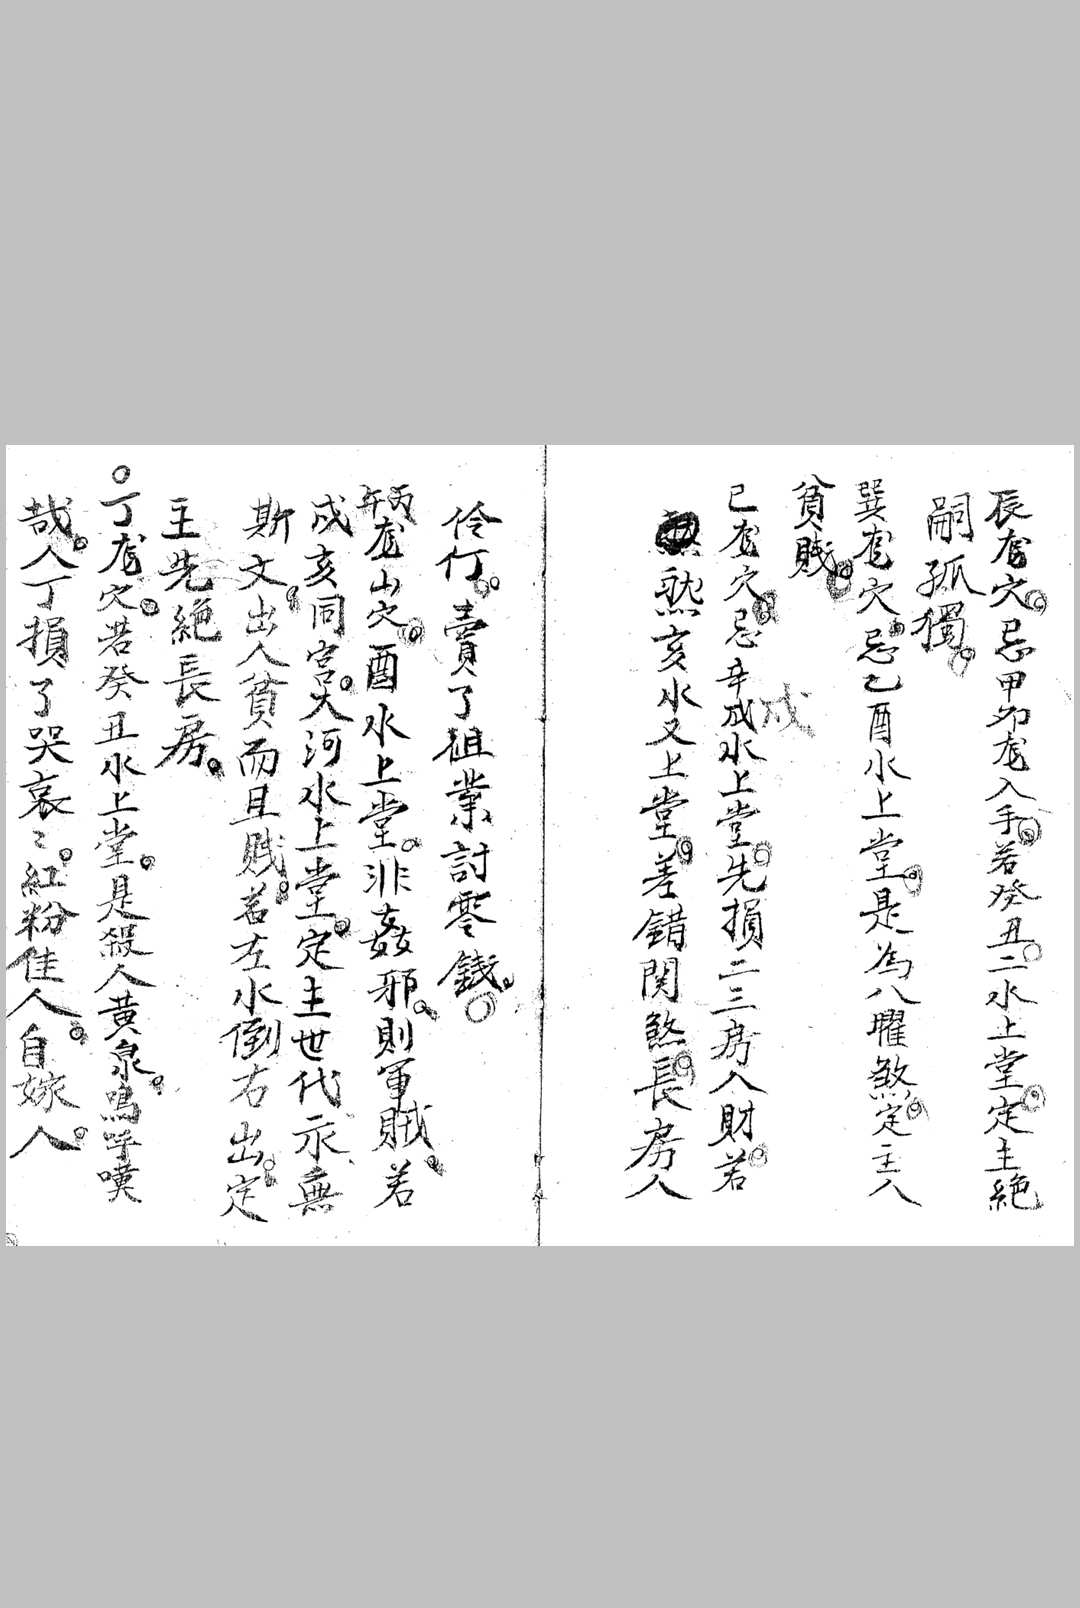 辰龙穴。忌甲卯龙入手。若癸丑二水上堂定主絕
嗣孤獨。
巽龙穴。忌乙酉水上堂。是為八曜煞定主人
貧賎。
巳龙穴忌辛戌水上堂。先損二三房人財。若
戌
然亥水又上堂。差錯関煞。長房人
伶仃。賣了祖業討零錢。
丙午龙山穴。酉水上堂。非姦邪。則軍賊。若
戌亥同宮。大河水上堂。定主世代永無
斯文。出人貧而且賎。若左水倒右出。定
主先絕長房。
丁龙穴。若癸丑水上堂。是殺人黄泉。嗚呼嘆
哉。人丁損了哭哀〻。紅粉佳人。自嫁人。